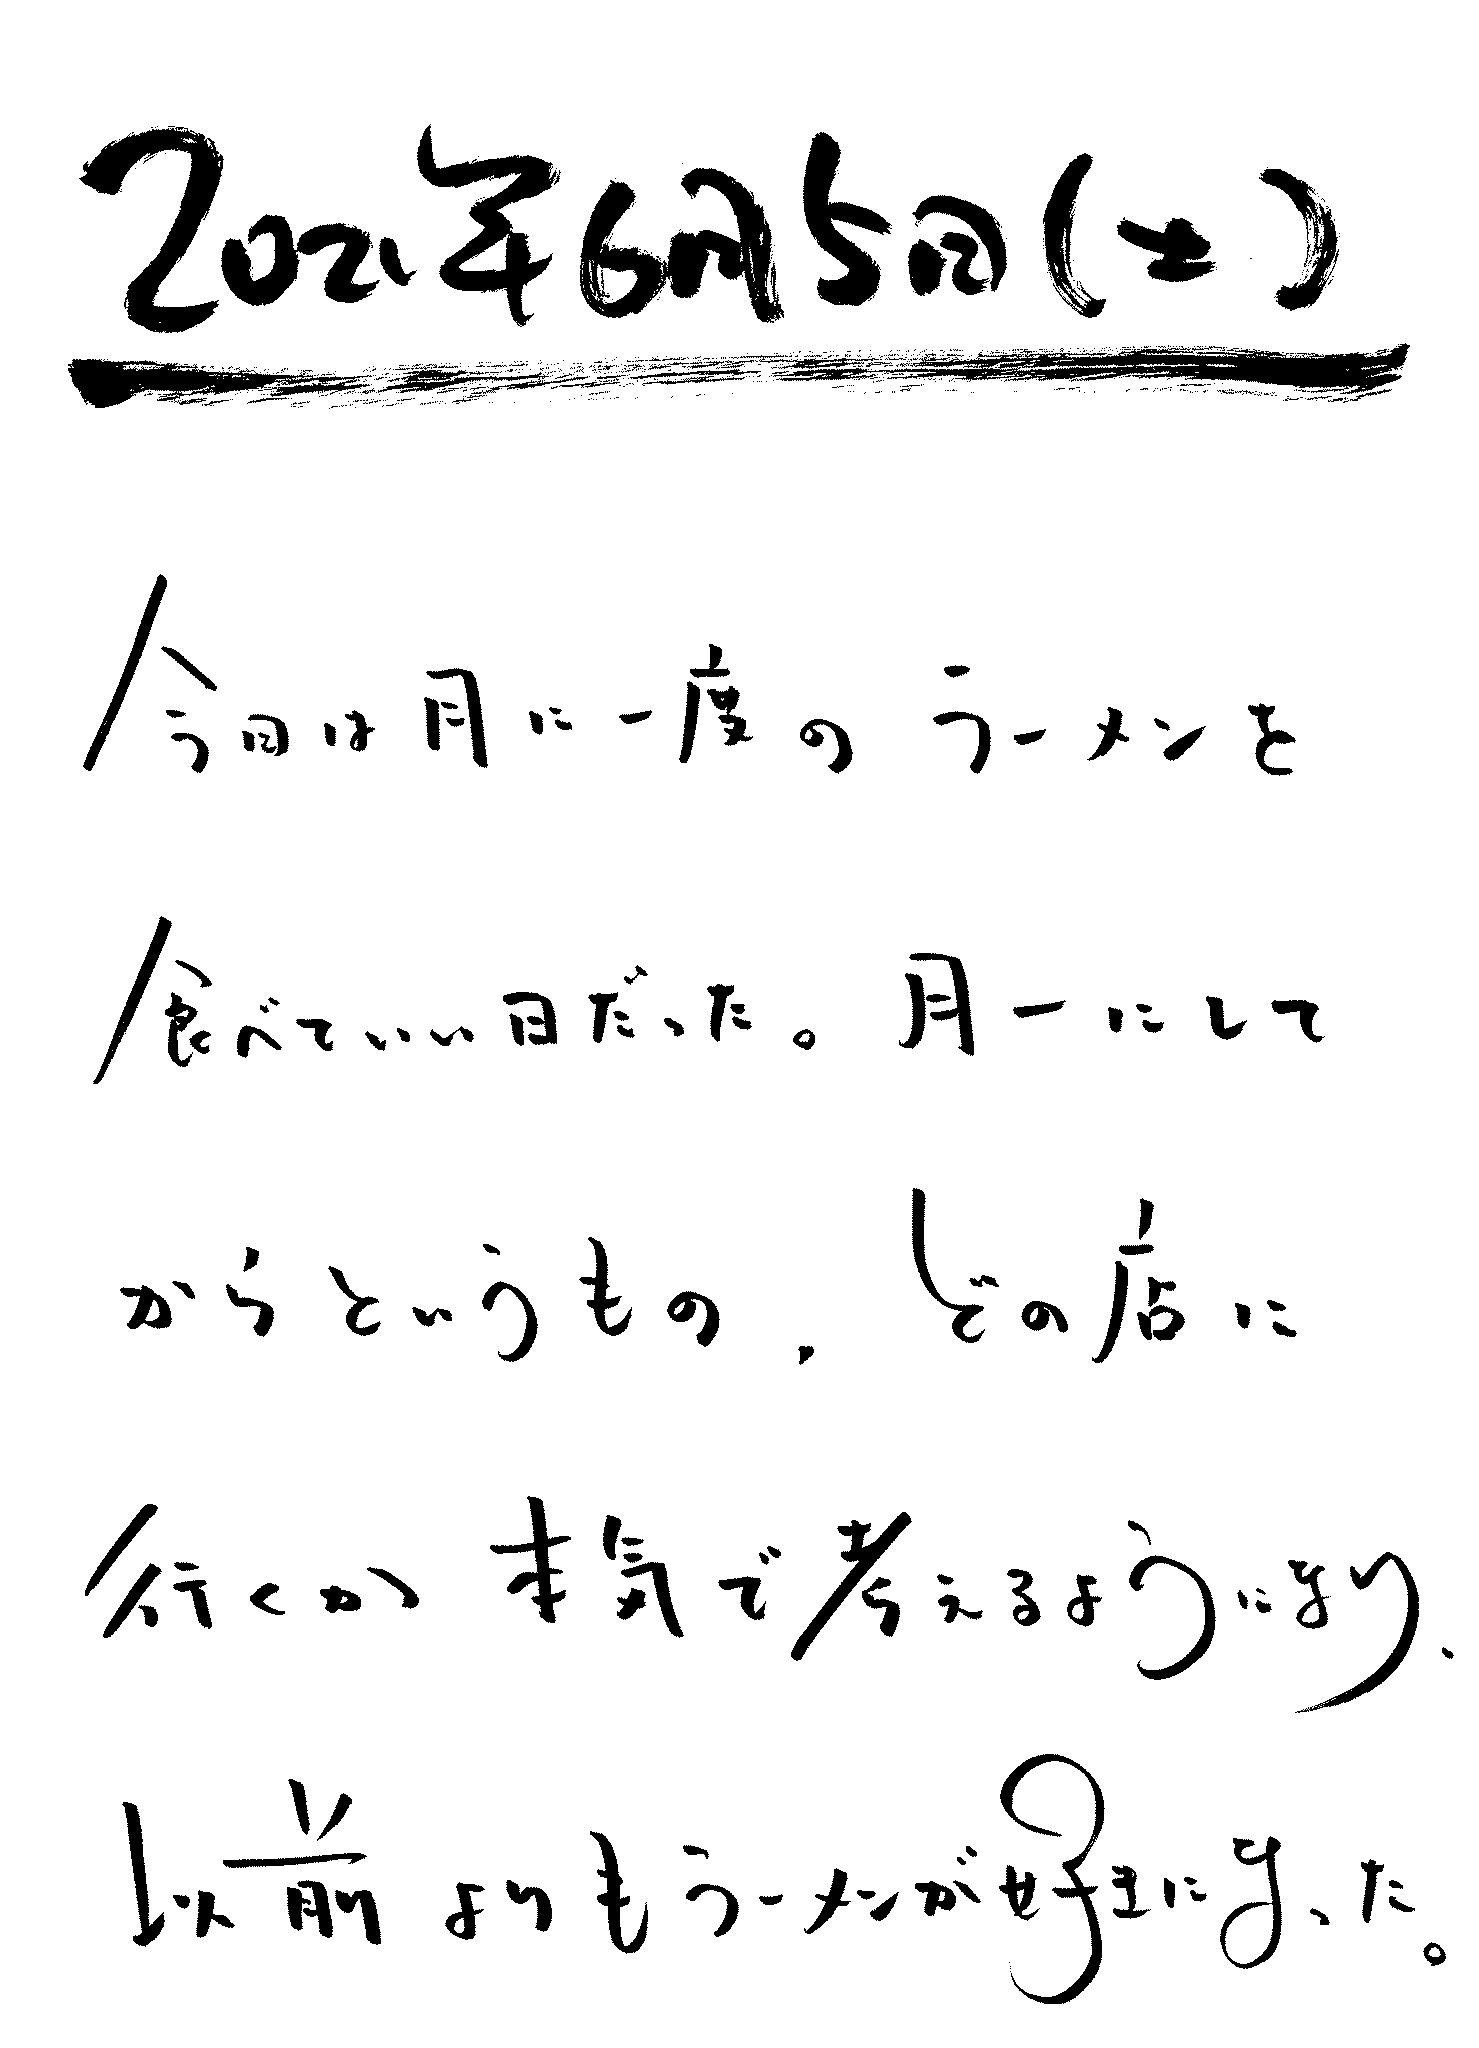 2021年6月5日(土)
今日は月に一度のラーメンを
食べていい日だった。月一にして
からというもの、どの店に
行くか本気で考えるようになり、
以前よりもラーメンが好きになった。